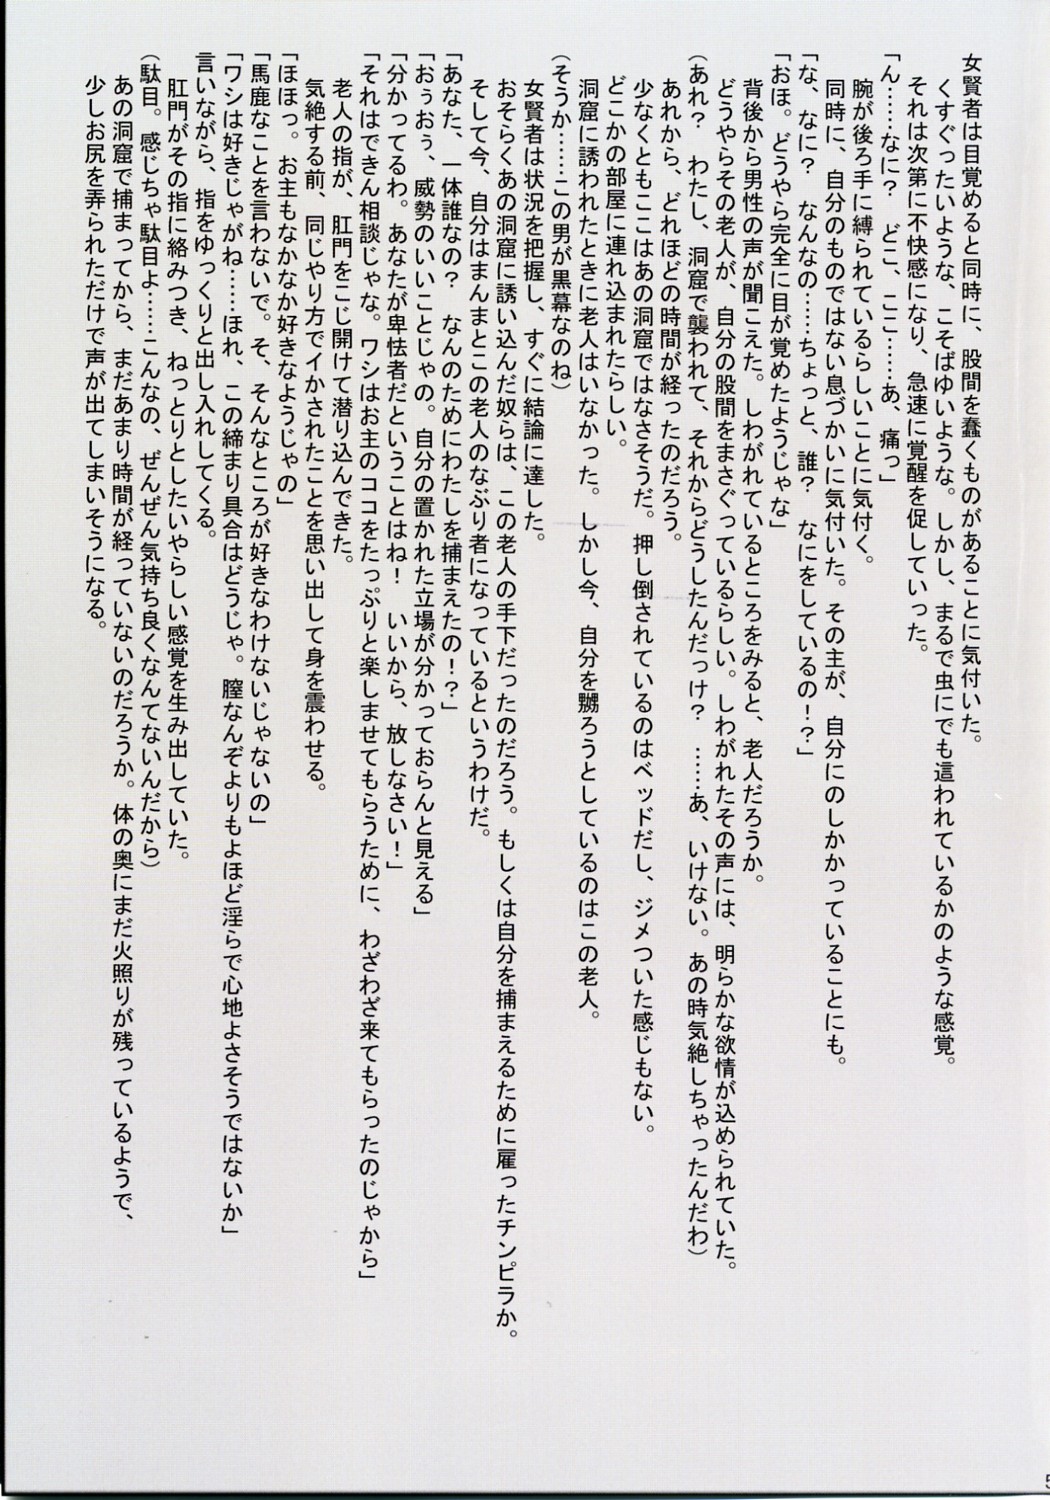 女賢者は目覚めると同時に、股間を蠢くものがあることに気付いた。
くすぐったいような、こそばゆいような。しかし、まるで虫にでも這われているかのような感覚。
それは次第に不快感になり、急速に覚醒を促していった。
「ん……なに？　どこ、ここ……あ、痛っ」
腕が後ろ手に縛られているらしいことに気付く。
同時に、自分のものではない息づかいに気付いた。その主が、自分にのしかかっていることにも。
「な、なに？　なんなの……ちょっと、誰？　なにをしているの！？」
「おほ。どうやら完全に目が覚めたようじゃな」
背後から男性の声が聞こえた。しわがれているところをみると、老人だろうか。
どうやらその老人が、自分の股間をまさぐっているらしい。しわがれたその声には、明らかな欲情が込められていた。
（あれ？　わたし、洞窟で襲われて、それからどうしたんだっけ？　……あ、いけない。あの時気絶しちゃったんだわ）
あれから、どれほどの時間が経ったのだろう。
少なくともここはあの洞窟ではなさそうだ。押し倒されているのはベッドだし、ジメついた感じもない。
どこかの部屋に連れ込まれたらしい。
洞窟に誘われたときに老人はいなかった。しかし今、自分を嬲ろうとしているのはこの老人。
（そうか……この男が黒幕なのね）
女賢者は状況を把握し、すぐに結論に達した。
おそらくあの洞窟に誘い込んだ奴らは、この老人の手下だったのだろう。もしくは自分を捕まえるために雇ったチンピラか。
そして今、自分はまんまとこの老人のなぶり者になっているというわけだ。
「あなた、一体誰なの？　なんのためにわたしを捕まえたの！？」
「おぅおぅ、威勢のいいことじゃの。自分の置かれた立場が分かっておらんと見える」
「分かってるわ。あなたが卑怯者だということはね！　いいから、放しなさい！」
「それはできん相談じゃな。ワシはお主のココをたっぷりと楽しませてもらうために、わざわざ来てもらったのじゃから」
老人の指が、肛門をこじ開けて潜り込んできた。
気絶する前、同じやり方でイかされたことを思い出して身を震わせる。
「ほほっ。お主もなかなか好きなようじゃの」
「馬鹿なことを言わないで。そ、そんなところが好きなわけないじゃないの」
「ワシは好きじゃがね……ほれ、この締まり具合はどうじゃ。膣なんぞよりもよほど淫らで心地よさそうではないか」
言いながら、指をゆっくりと出し入れしてくる。
肛門がその指に絡みつき、ねっとりとしたいやらしい感覚を生み出していた。
（駄目。感じちゃ駄目よ……こんなの、ぜんぜん気持ち良くなんてないんだから）
あの洞窟で捕まってから、まだあまり時間が経っていないのだろうか。体の奥にまだ火照りが残っているようで、
少しお尻を弄られただけで声が出てしまいそうになる。
5